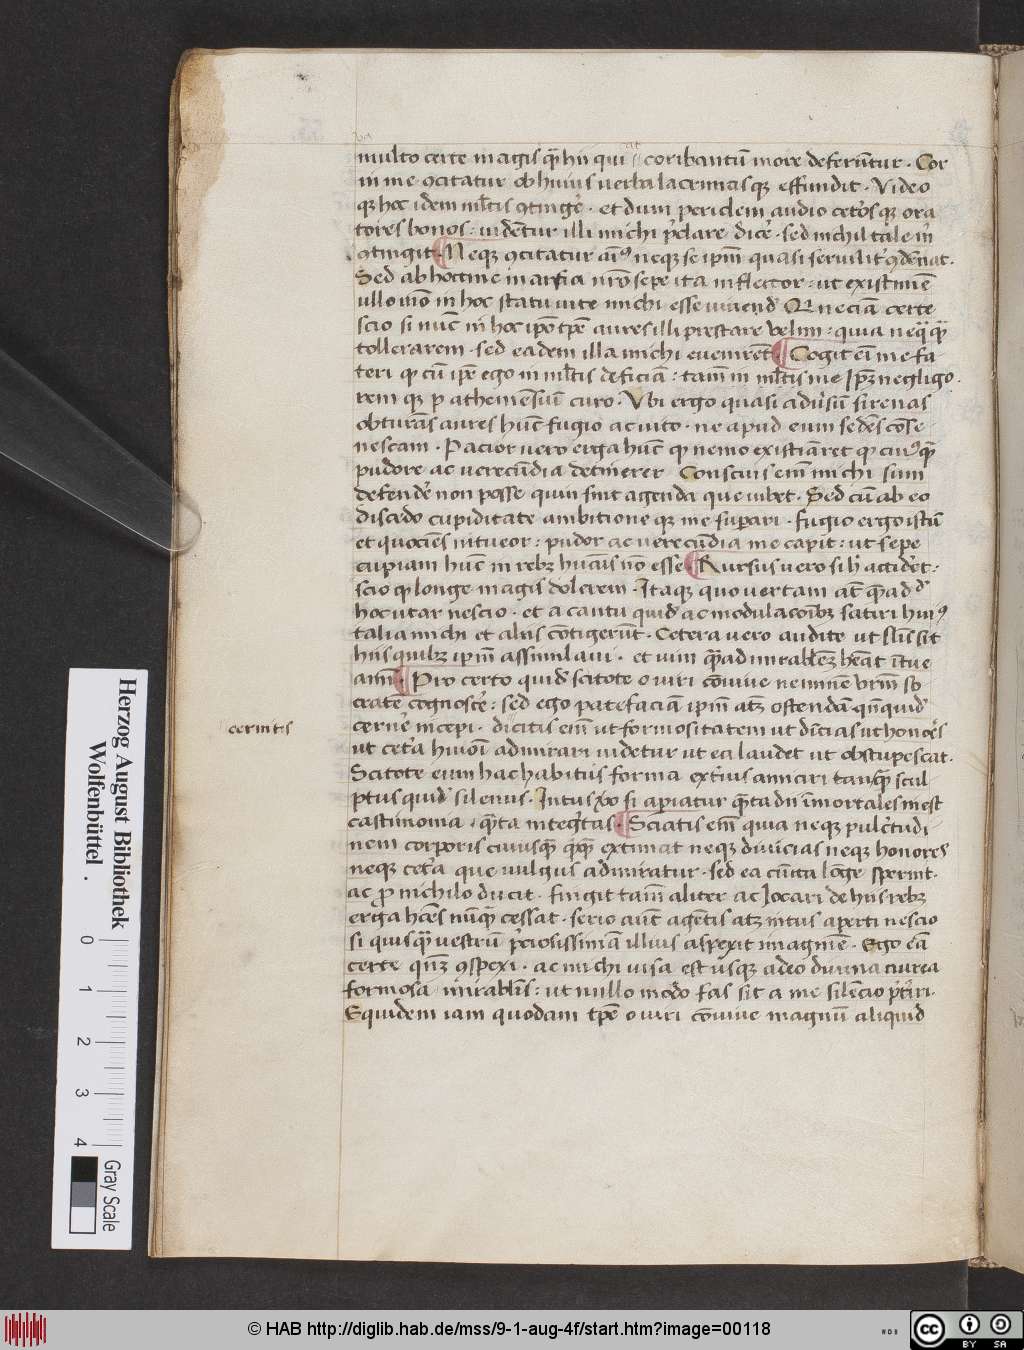 multo certe magis q̃ hii qui coribantũ more deferũtur · Cor
in me ꝯcitatur ob huius verba lacrimasqꝫ effundit · Video
qꝫ hoc idem ml̃tis ꝯtinge᷑ · et dum periclem audio cete᷑osqꝫ ora
tores bonos : uidẽtur illi michi p̃clare dice᷑ · sed nichil tale m̃
ꝯtingit · Neqꝫ ꝯcitatur aĩꝰ neqꝫ se ipm̃ quasi seruilit᷑ ꝯdẽnat ·
Sed ab hoc me marsia nr̃o sepe ita inflector : ut existimẽ
ullo mõ in hoc statu uite michi esse uiuend᷑ Qñ eciã certe
scio si nũc in hoc ip̃o tp̃e aures illi prestare velim : quia neq̃q̃
tollerarem · sed eadem illa michi euenirẽt · Cogit eĩ me fa
teri qp cũ ip̃e ego in ml̃tis deficiã : tam̃ in ml̃tis me Ipꝫ negligo ·
rem qꝫ p atheniẽsiũ curo · Vbi ergo quasi adũsũ sirenas
obturãs aures hũc fugio ac uito · ne apud eum sedẽs cõse
nescam · Pacior uero erga hũc qp nemo existiãret qp cuiꝰq̃
pudore ac uerecũdia detinerer Conscius em̃ michi sum
defende᷑ non posse quin sint agenda que iubet · Sed cũ ab eo
discedo cupiditate ambitione qꝫ me supari · fugio ergo istũ
et quociẽs intueor : pudor ac uerecũdia me capit : ut sepe
cupiam hũc in rebꝫ huãis nõ esse · Rursus uero si h᷑ accide᷑t :
scio qp longe magis dolerem · Itaqꝫ quo vertam aũt q̃ ad
hoc utar nescio · et a cantu quid᷑ ac modulacõibꝫ satiri huiꝰ
talia michi et aliis cõtigerũt · Cetera uero audite ut sil̃is sit
hiis quibꝫ ipm̃ assimilaui · et uim q̃ admirabilẽꝫ hẽat ĩtue
amĩ · Pro certo quid᷑ scitote o uiri cõuiue neminẽ vr̃m so
cratẽ cognosce᷑ : sed ego patefaciam ipm̃ atꝫ ostendã qñquid᷑
cerne᷑ incepi · dicitis em̃ ut formositatem ut diuicias ut honor᷑es
cernitis
ut cete᷑a huiõi admirari uidetur ut ea laudet ut obstupescat ·
Scitote eum hac habitus forma exte᷑ius amiciri tanq̃ scul
ptus quid᷑ silenus · Intus v̊o si apiatur q̃ta dii ĩmortales inest
castimonia · q̃ta integ᷑tas · Sciatis em̃ quia neqꝫ pulc᷑tudi
nem corporis cuiusq̃ q̃q̃ extimat neqꝫ diuicias neqꝫ honores
neqꝫ cete᷑a que uulgus admiratur · sed ea cũcta lõge spernit ·
ac p nichilo ducit · fingit tam̃ aliter ac Iocari de hiis rebꝫ
erga hoẽs nũq̃ cessat · serio aũt agentis atꝫ intus aperti nescio
si quisq̃ uestrũ p̃ciosissimã illius aspexit imaginẽ · Ego eã
certe qñꝫ ꝯspexi · ac michi uisa est usqꝫ adeo diuina aurea
formosa mirabl̃is : ut nullo modo fas sit a me silẽcio p̃t᷑iri ·
Equidem iam quodam tp̃e o uiri cõuiue magnũ aliquid
Herzog August Bibliothek
Wolfenbüttel
0 1 2 3 4
Gray Scale
© HAB http://diglib.hab.de/mss/9-1-aug-4f/start.htm?image=00118
WDB
cc BY SA